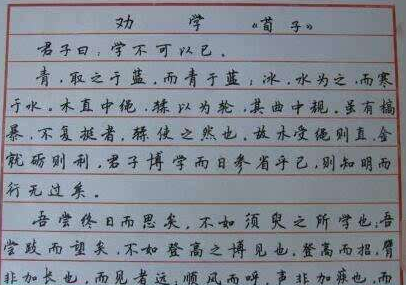 劝 学 《荀子》
君子曰：学不可以已。
青，取之于蓝，而青于蓝；冰，水为之，而寒
于水。木直中绳，𫐓以为轮，其曲中规，虽有槁
暴，不复挺者，𫐓使之然也。故木受绳则直，金
就砺则利，君子博学而日参省乎己，则知明而
行无过矣。
吾尝终日而思矣，不如须臾之所学也；吾
尝跂而望矣，不如登高之博见也。登高而招，臂
非加长也，而见者远；顺风而呼，声非加疾也，而